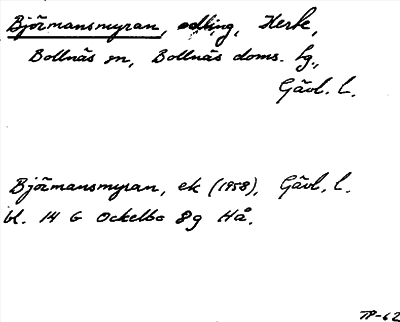 Björmansmyran, odling, Herk,
Bollnäs sn, Bollnäs doms. hg.,
Gävl. l.
Björmansmyran, ek (1958), Gävl. l.
bl. 14 G Ockelbo 8g Hå.
TP-62